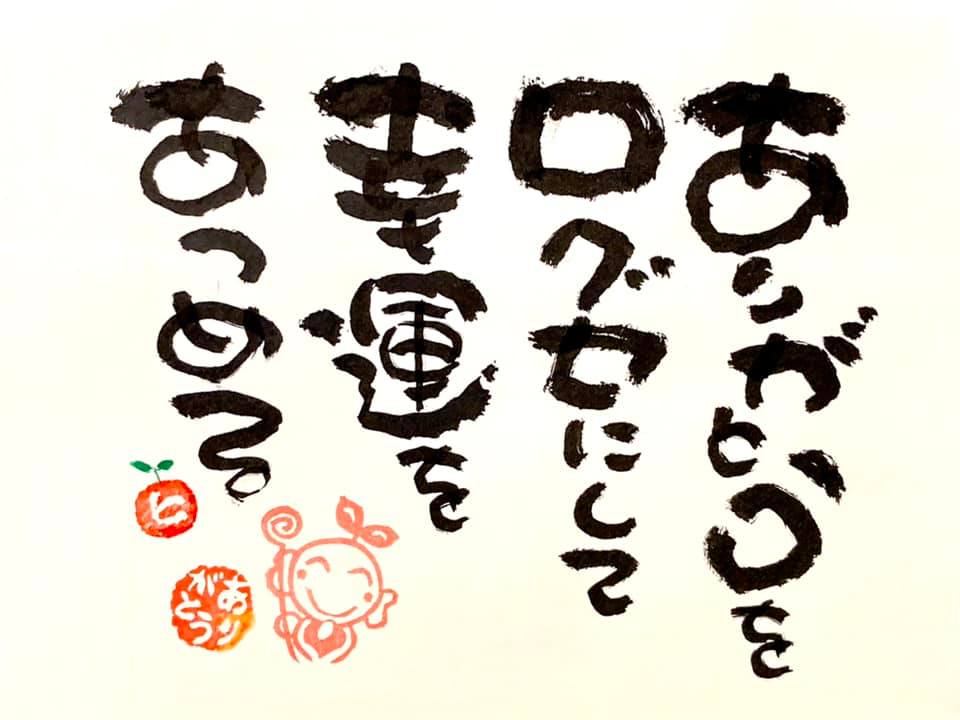 ありがとうを
口グセにして
幸運を
あつめる
ヒ
ありがとう